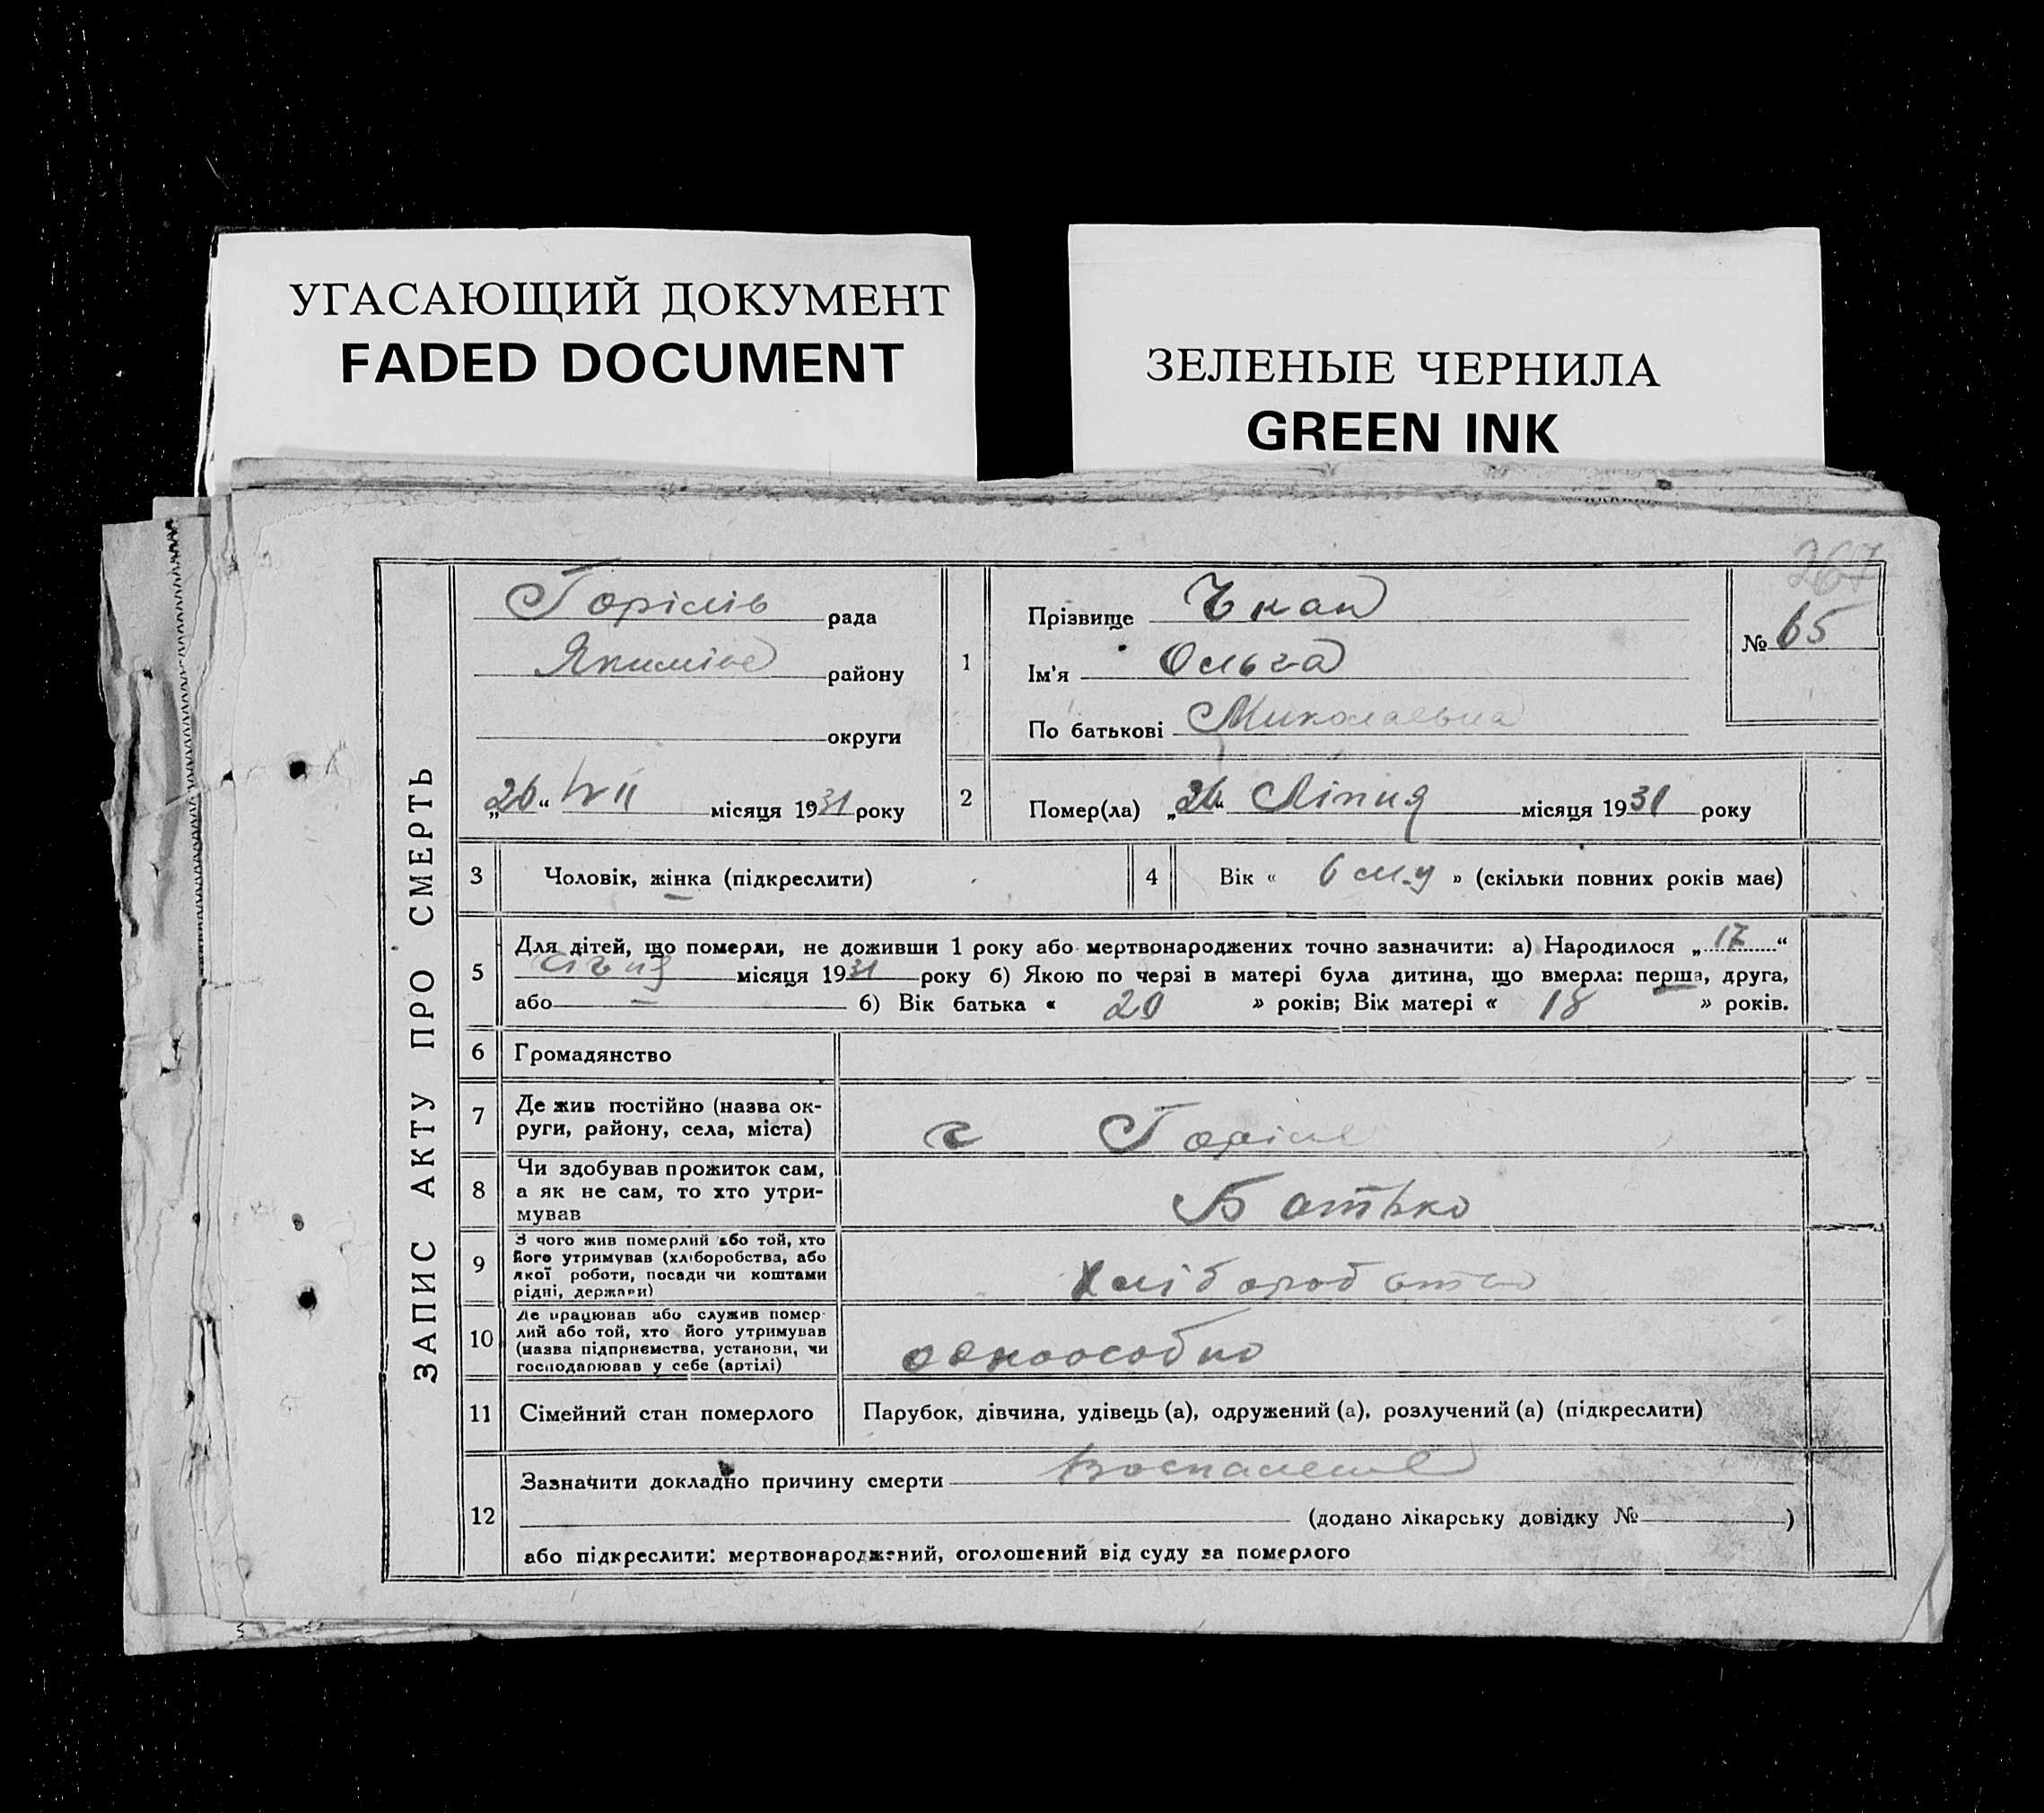 УГАСАЮЩИЙ ДОКУМЕНТ
FADED DOCUMENT
ЗЕЛЕНЫЕ ЧЕРНИЛА
GREEN INK
267
ЗАПИС АКТУ ПРО СМЕРТЬ
Горілів рада
району
округи
„26“ VII місяця 1931 року
1
Прізвище Чкан
Ім'я Ольга
По батькові Миколаевна
№ 65
2 Помер(ла) „26“ Ліпня місяця 1931 року
3 Чоловік, жінка (підкреслити)
4 Вік « 6 м-у » (скільки повних років має)
5 Для дітей, що померли, не доживши 1 року або мертвонароджених точно зазначити: а) Народилося „17“
січня місяця 1931 року б) Якою по черзі в матері була дитина, що вмерла: перша, друга,
або — б) Вік батька « 20 » років; Вік матері « 18 » років.
6 Громадянство
7 Де жив постійно (назва ок-
руги, району, села, міста)
с Горіле
8 Чи здобував прожиток сам,
а як не сам, то хто утри-
мував
Батько
9 З чого жив померлий або той, хто
його утримував (хліборобства, або
якої роботи, посади чи коштами
рідні, держави)
Хлібороб
10 Де працював або служив помер-
лий або той, хто його утримував
(назва підприємства, установи, чи
господарював у себе (артілі)
одноособно
11 Сімейний стан померлого Парубок, дівчина, удівець (а), одружений (а), розлучений (а) (підкреслити)
12 Зазначити докладно причину смерти Воспаление
(додано лікарську довідку № )
або підкреслити: мертвонароджений, оголошений від суду за померлого